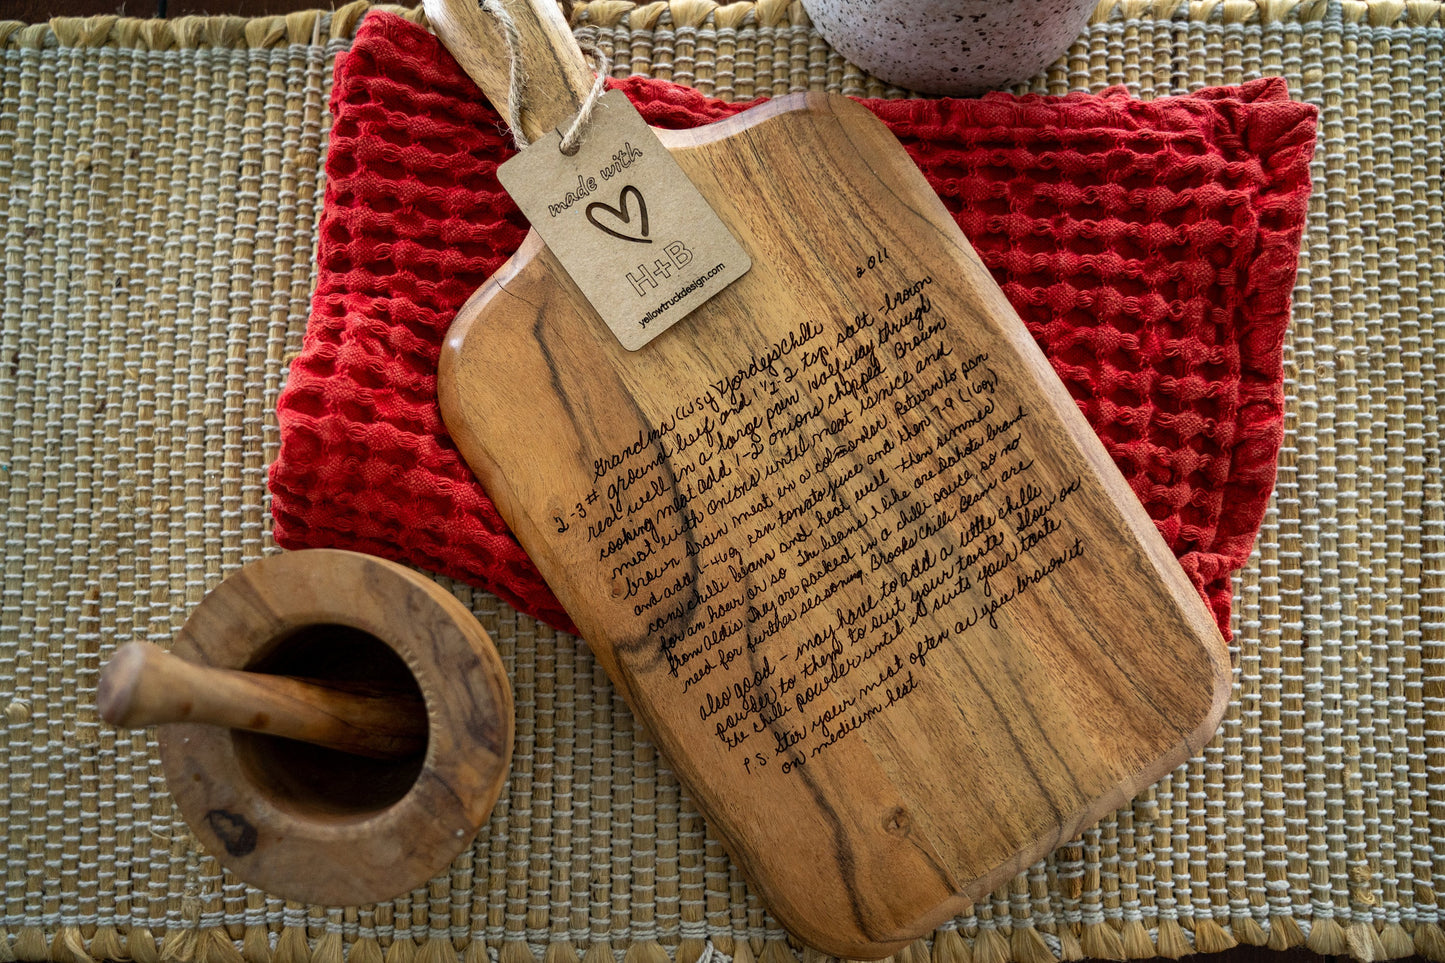 made with
H+B
yellowtruckdesign.com
2011
Grandma (Wsy) Yordejs Chili
2-3# ground beef and 1 1/2-2 tsp salt - brown
real well in a large pan. Halfway through
cooking meat add 1-2 onions chopped. Brown
meat with onions until meat is nice and
brown. Drain meat in a colander. Return to pan
and add 1-46oz can tomato juice and then 7-9 (16oz)
cans chili beans and heat well - then simmer
for an hour or so. The beans I like are Dakota brand
from aldis. They are packed in a chili sauce, so no
need for further seasoning. Brooks Chili Beans are
also good - may have to add a little chili
powder to them to suit your taste. Slow on
the chili powder until it suits your taste
P.S. Ster your meat often as you brown it
on medium heat